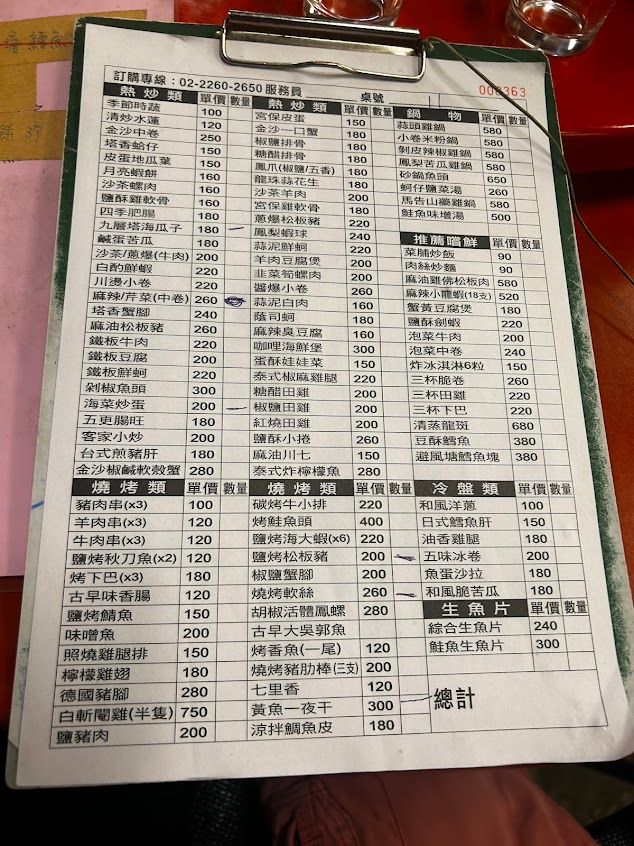 訂購專線：02-2260-2650 服務員 桌號 000363
熱炒類 單價 數量
季節時蔬 100
清炒水蓮 120
金沙中卷 250
塔香蛤仔 150
皮蛋地瓜葉 150
月亮蝦餅 160
沙茶螺肉 160
鹽酥雞軟骨 160
四季肥腸 180
九層塔海瓜子 180
鹹蛋苦瓜 180
沙茶/蔥爆(牛肉) 200
白酌鮮蝦 220
川燙小卷 220
麻辣/芹菜(中卷) 260
塔香蟹腳 240
麻油松板豬 260
鐵板牛肉 220
鐵板豆腐 200
鐵板鮮蚵 220
剁椒魚頭 300
海菜炒蛋 200
五更腸旺 180
客家小炒 200
台式煎豬肝 180
金沙椒鹹軟殼蟹 280
熱炒類 單價 數量
宮保皮蛋 150
金沙一口蟹 180
椒鹽排骨 180
糖醋排骨 180
鳳爪(椒鹽/五香) 180
龍珠蒜花生 180
沙茶羊肉 200
宮保雞軟骨 200
蔥爆松板豬 220
鳳梨蝦球 240
蒜泥鮮蚵 220
羊肉豆腐煲 200
韭菜筍螺肉 200
醬爆小卷 260
蒜泥白肉 160
蔭司蚵 180
麻辣臭豆腐 160
咖哩海鮮堡 300
蛋酥娃娃菜 150
泰式椒麻雞腿 220
糖醋田雞 200
椒鹽田雞 200
紅燒田雞 200
鹽酥小捲 260
麻油川七 150
泰式炸檸檬魚 280
鍋物 單價 數量
蒜頭雞鍋 580
小卷米粉鍋 580
剝皮辣椒雞鍋 580
鳳梨苦瓜雞鍋 580
砂鍋魚頭 650
蚵仔鹽菜湯 260
馬告山藥雞鍋 580
鮭魚味增湯 500
推薦嚐鮮 單價 數量
菜脯炒飯 90
肉絲炒麵 90
麻油雞佛松板肉 580
麻辣小龍蝦(18支) 520
蟹黃豆腐煲 180
鹽酥劍蝦 220
泡菜牛肉 200
泡菜中卷 240
炸冰淇淋6粒 150
三杯脆卷 260
三杯田雞 220
三杯下巴 220
清蒸龍斑 680
豆酥鱈魚 380
避風塘鱈魚塊 380
燒烤類 單價 數量
豬肉串(x3) 100
羊肉串(x3) 120
牛肉串(x3) 120
鹽烤秋刀魚(x2) 120
烤下巴(x3) 180
古早味香腸 120
鹽烤鯖魚 150
味噌魚 200
照燒雞腿排 150
檸檬雞翅 180
德國豬腳 280
白斬閹雞(半隻) 750
鹽豬肉 200
燒烤類 單價 數量
碳烤牛小排 220
烤鮭魚頭 400
鹽烤海大蝦(x6) 220
鹽烤松板豬 200
椒鹽蟹腳 200
燒烤軟絲 260
胡椒活體鳳螺 280
古早大吳郭魚
烤香魚(一尾) 120
燒烤豬肋棒(三支) 200
七里香 120
黃魚一夜干 300
涼拌鯛魚皮 180
冷盤類 單價 數量
和風洋蔥 100
日式鱈魚肝 150
油香雞腿 180
五味冰卷 200
魚蛋沙拉 180
和風脆苦瓜 180
生魚片 單價 數量
綜合生魚片 240
鮭魚生魚片 300
總計